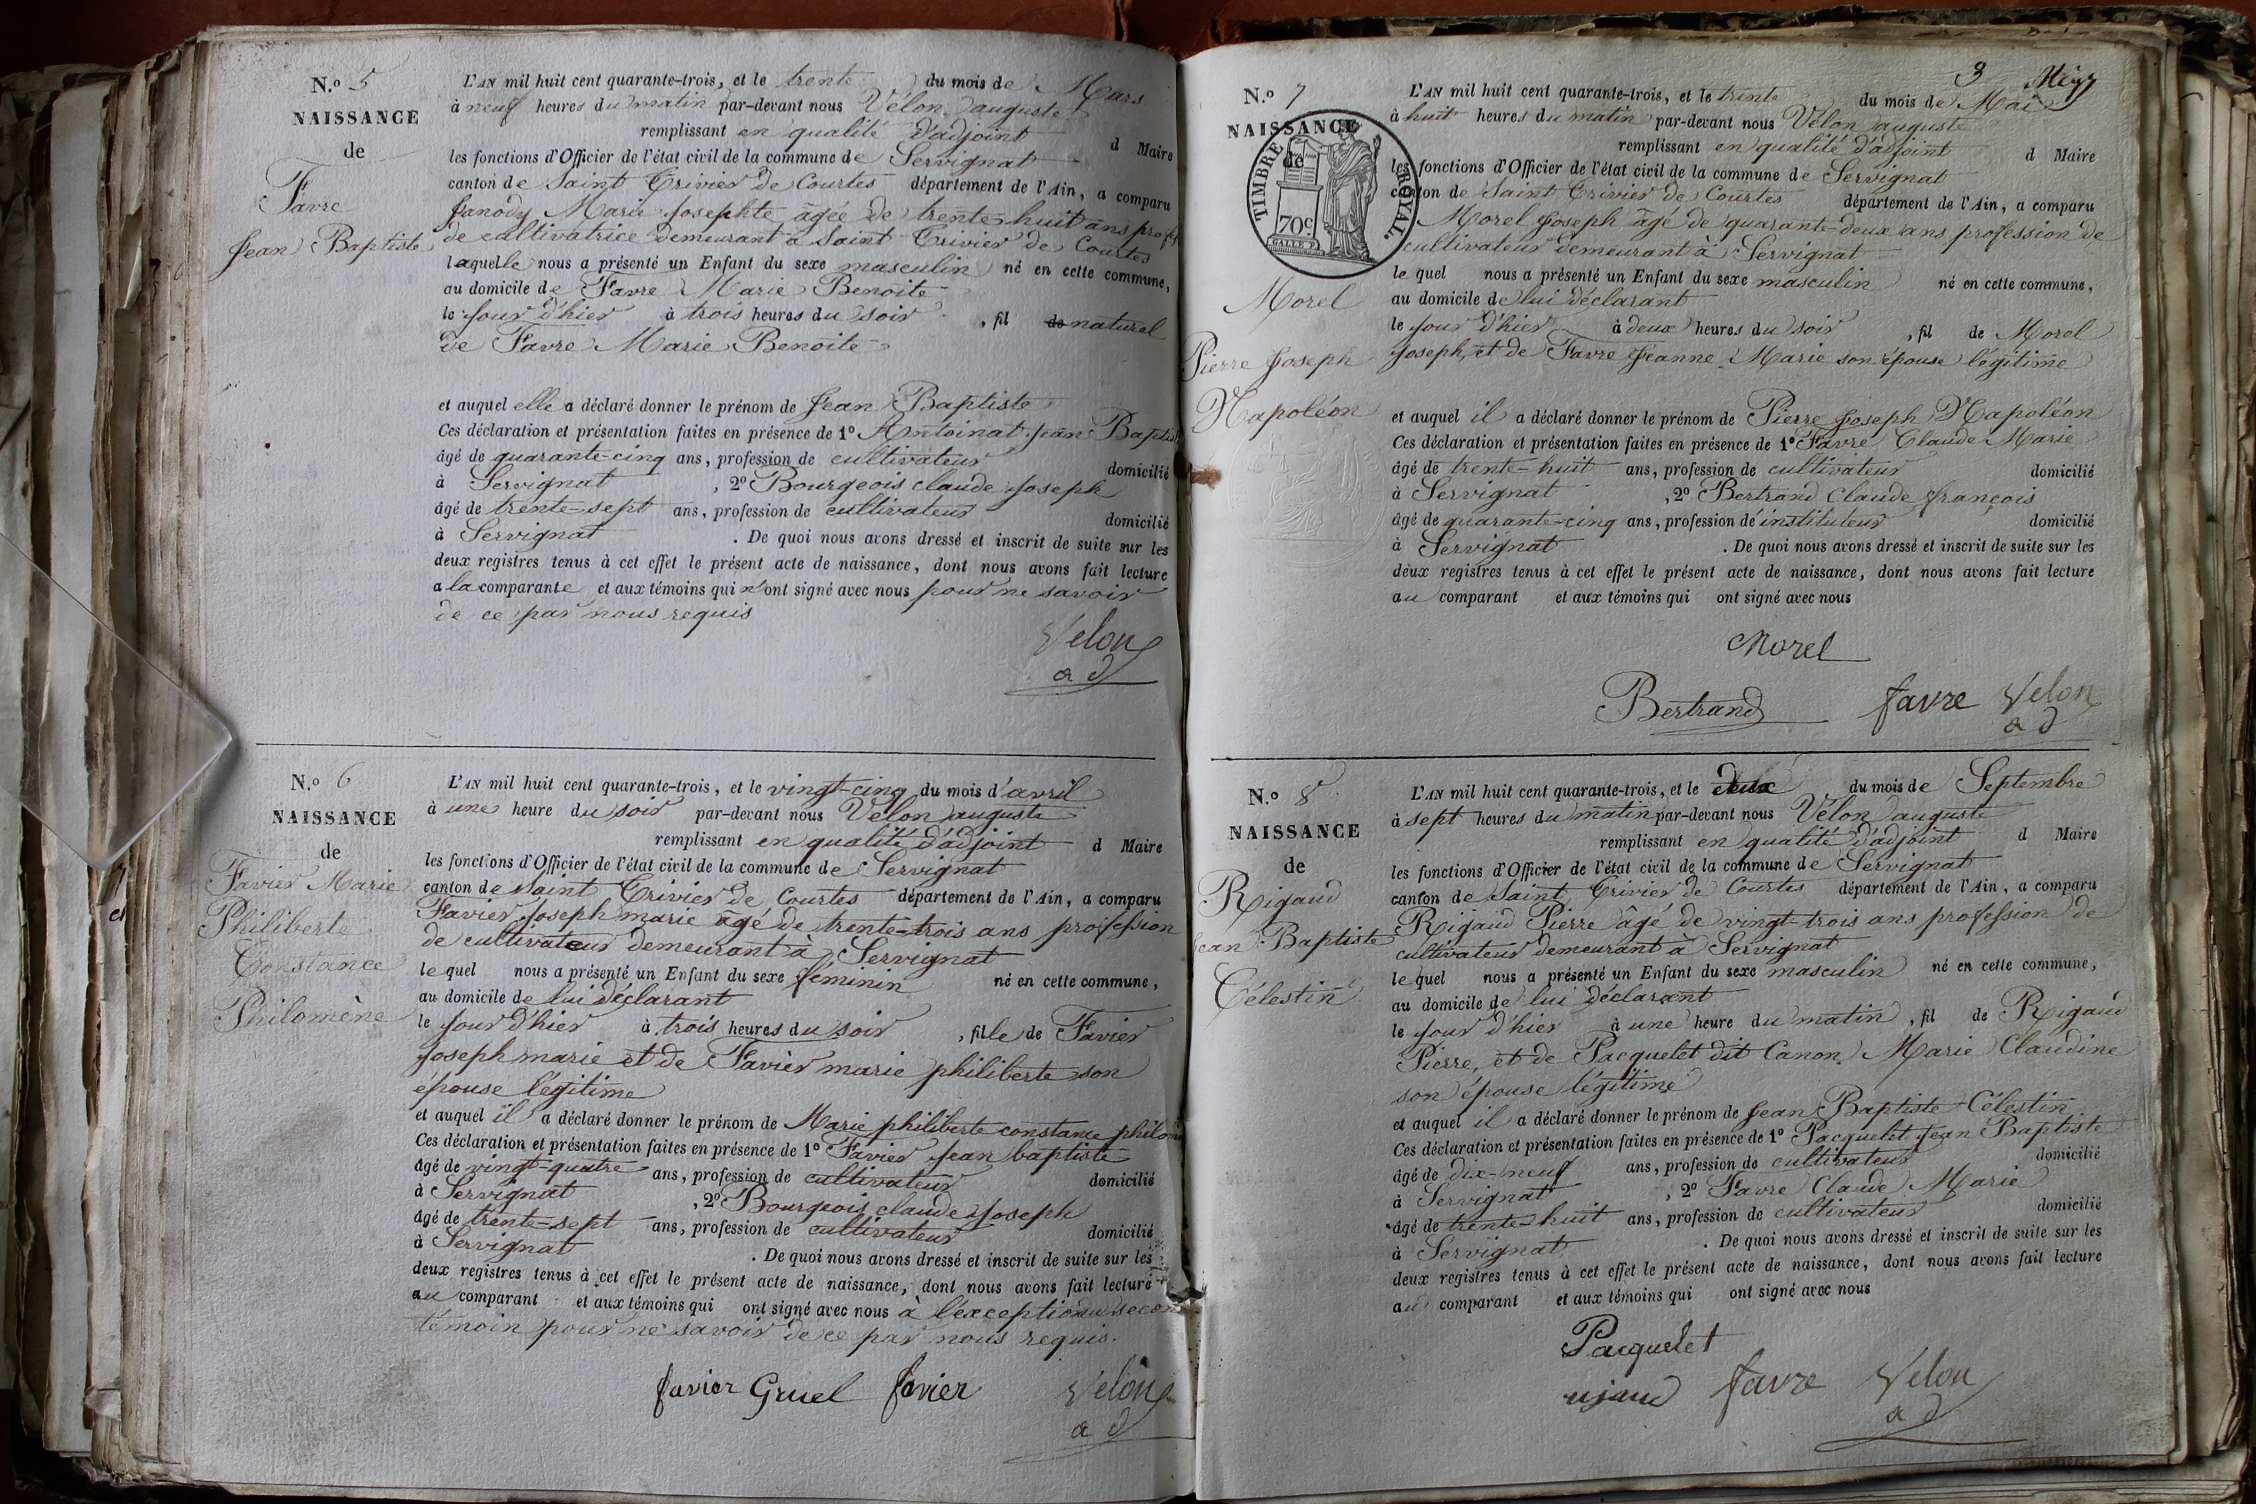 N.º 5
NAISSANCE
de
Favre
Jean Baptiste
L'AN mil huit cent quarante-trois, et le trente du mois de Mars
à neuf heures du matin par-devant nous Vélon auguste
remplissant en qualité d'adjoint d Maire
les fonctions d'Officier de l'état civil de la commune de Servignat
canton de Saint Trivier de Courtes département de l'Ain, a comparu
Janody Marie Josephte âgée de trente-huit ans prof
de cultivatrice demeurant à Saint Trivier de Courtes
laquelle nous a présenté un Enfant du sexe masculin né en cette commune,
au domicile de Favre Marie Benoite
le jour d'hier à trois heures du soir, fil de naturel
de Favre Marie Benoite
et auquel elle a déclaré donner le prénom de Jean Baptiste
Ces déclaration et présentation faites en présence de 1º Antoinat Jean Baptis
âgé de quarante-cinq ans, profession de cultivateur domicilié
à Servignat, 2º Bourgeois claude Joseph
âgé de trente-sept ans, profession de cultivateur domicilié
à Servignat. De quoi nous avons dressé et inscrit de suite sur les
deux registres tenus à cet effet le présent acte de naissance, dont nous avons fait lecture
a la comparante et aux témoins qui n'ont signé avec nous pour ne savoir
de ce par nous requis
Velon
ad
N.º 6
NAISSANCE
de
Favier Marie
Philiberte
Constance
Philomène
L'AN mil huit cent quarante-trois, et le vingt-cinq du mois d'avril
à une heure du soir par-devant nous Vélon auguste
remplissant en qualité d'adjoint d Maire
les fonctions d'Officier de l'état civil de la commune de Servignat
canton de Saint Trivier de Courtes département de l'Ain, a comparu
Favier Joseph marie âgé de trente-trois ans profession
de cultivateur demeurant à Servignat
le quel nous a présenté un Enfant du sexe féminin né en cette commune,
au domicile de lui déclarant
le jour d'hier à trois heures du soir, fille de Favier
Joseph marie et de Favier marie philiberte son
épouse légitime
et auquel il a déclaré donner le prénom de Marie philiberte constance philom
Ces déclaration et présentation faites en présence de 1º Favier Jean baptiste
âgé de vingt-quatre ans, profession de cultivateur domicilié
à Servignat, 2º Bourgeois claude Joseph
âgé de trente-sept ans, profession de cultivateur domicilié
à Servignat. De quoi nous avons dressé et inscrit de suite sur les
deux registres tenus à cet effet le présent acte de naissance, dont nous avons fait lecture
au comparant et aux témoins qui ont signé avec nous à l'exception du secon
témoin pour ne savoir de ce par nous requis.
favier Gruel favier Velon
ad
3
N.º 7
NAISSANCE
de
TIMBRE ROYAL.
70c
Morel
Pierre Joseph
Napoléon
L'AN mil huit cent quarante-trois, et le trente du mois de Mai
à huit heures du matin par-devant nous Vélon auguste
remplissant en qualité d'adjoint d Maire
les fonctions d'Officier de l'état civil de la commune de Servignat
canton de Saint Trivier de Courtes département de l'Ain, a comparu
Morel Joseph âgé de quarante-deux ans profession de
cultivateur demeurant à Servignat
le quel nous a présenté un Enfant du sexe masculin né en cette commune,
au domicile de lui déclarant
le jour d'hier à deux heures du soir, fil de Morel
Joseph, et de Favre Jeanne Marie son épouse légitime
et auquel il a déclaré donner le prénom de Pierre Joseph Napoléon
Ces déclaration et présentation faites en présence de 1º Favre Claude Marie
âgé de trente-huit ans, profession de cultivateur domicilié
à Servignat, 2º Bertrand Claude françois
âgé de quarante-cinq ans, profession d'instituteur domicilié
à Servignat. De quoi nous avons dressé et inscrit de suite sur les
deux registres tenus à cet effet le présent acte de naissance, dont nous avons fait lecture
au comparant et aux témoins qui ont signé avec nous
Morel
Bertrand favre Velon
ad
N.º 8
NAISSANCE
de
Rigaud
Jean Baptiste
Célestin
L'AN mil huit cent quarante-trois, et le deux du mois de Septembre
à sept heures du matin par-devant nous Vélon auguste
remplissant en qualité d'adjoint d Maire
les fonctions d'Officier de l'état civil de la commune de Servignat
canton de Saint Trivier de Courtes département de l'Ain, a comparu
Rigaud Pierre âgé de vingt-trois ans profession de
cultivateur demeurant à Servignat
le quel nous a présenté un Enfant du sexe masculin né en cette commune,
au domicile de lui déclarant
le jour d'hier à une heure du matin, fil de Rigaud
Pierre, et de Pacquelet dit Canon Marie Claudine
son épouse légitime
et auquel il a déclaré donner le prénom de Jean Baptiste Célestin
Ces déclaration et présentation faites en présence de 1º Pacquelet Jean Baptiste
âgé de dix-neuf ans, profession de cultivateur domicilié
à Servignat, 2º Favre Claude Marie
âgé de trente-huit ans, profession de cultivateur domicilié
à Servignat. De quoi nous avons dressé et inscrit de suite sur les
deux registres tenus à cet effet le présent acte de naissance, dont nous avons fait lecture
au comparant et aux témoins qui ont signé avec nous
Pacquelet
favre Velon
ad